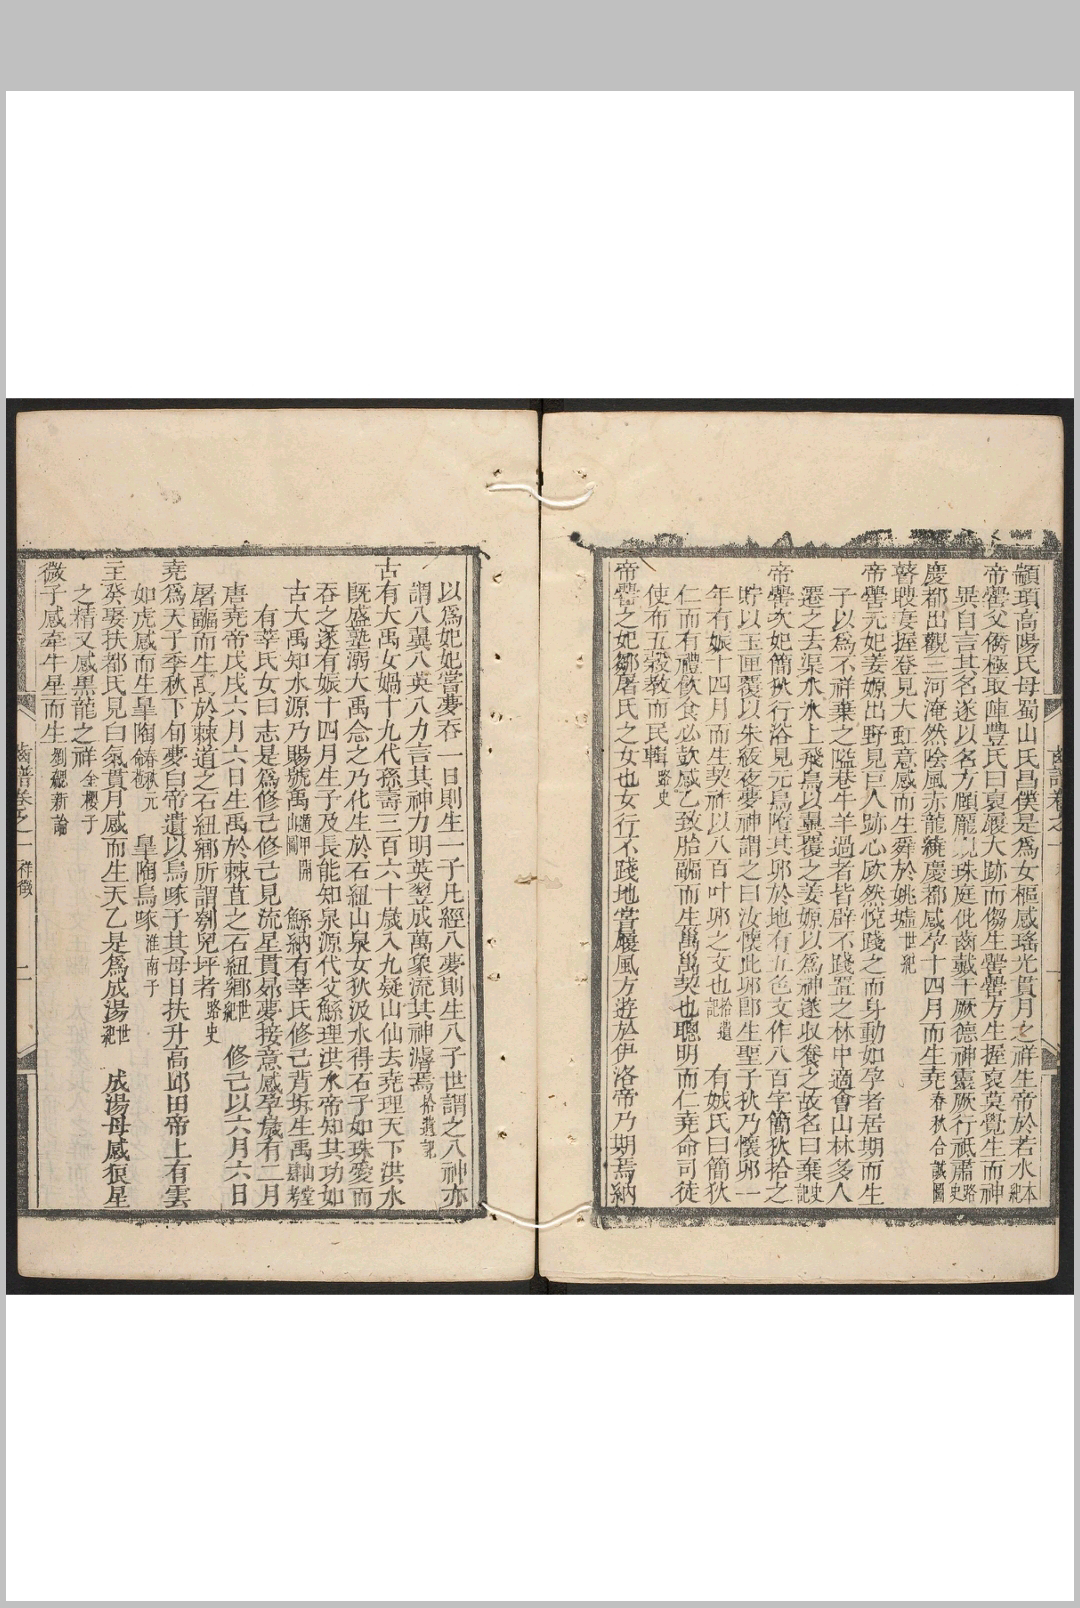 顓頊高陽氏母蜀山氏昌僕是爲女樞感瑤光貫月之祥生帝於若水本紀
帝嚳父僑極取陣豐氏曰裒履大跡而㑳生嚳嚳方生握裒莫覺生而神
異自言其名遂以名方頤龐珠庭仳齒戴干厥德神靈厥行祇肅路史
慶都出觀三河淹然陰風赤龍繞慶都感孕十四月而生堯春秋合誠圖
瞽瞍妻握登見大虹意感而生舜於姚墟世紀
帝嚳元妃姜嫄出野見巨人跡心欣然悅踐之而身動如孕者居期而生
子以爲不祥棄之隘巷牛羊過者皆辟不踐置之林中適會山林多人
遷之去渠水冰上飛鳥以翼覆之姜嫄以爲神遂收養之故名曰棄史記
帝嚳次妃簡狄行浴見元鳥墮其卵於地有五色文作八百字簡狄拾之
貯以玉匣覆以朱紱夜夢神謂之曰汝懷此卵卽生聖子狄乃懷卵一
年有娠十四月而生契祚以八百叶卵之文也拾遺記 有娀氏曰簡狄
仁而有禮飲食必㰱感乙致胎疈而生卨卨契也聰明而仁堯命司徒
使布五穀敎而民輯路史
帝嚳之妃鄒屠氏之女也女行不踐地嘗履風方遊於伊洛帝乃期焉納
齒譜卷之一
以爲妃妃嘗夢吞一日則生一子凡經八夢則生八子世謂之八神亦
謂八翼八英八力言其神力明英翌成萬象流其神濬焉拾遺記
古有大禹女媧十九代孫壽三百六十歲入九疑山仙去堯理天下洪水
旣盛墊溺大禹念之乃化生於石紐山泉女狄汲水得石子如珠愛而
吞之遂有娠十四月生子及長能知泉源代父鯀理洪水帝知其功如
古大禹知水源乃賜號禹遁甲開山圖 鯀納有莘氏修己背坼生禹仙堂肆考
有莘氏女曰志是爲修己修己見流星貫昴夢接意感孕歲有二月
唐堯帝戊戌六月六日生禹於棘苴之石紐鄉世紀 修己以六月六日
屠疈而生禹於棘道之石紐鄉所謂刳兒坪者路史
堯爲天子季秋下旬夢白帝遺以烏啄子其母曰扶升高邱田帝上有雲
如虎感而生皐陶春秋元命苞 皐陶烏啄淮南子
主癸娶扶都氏見白氣貫月感而生天乙是爲成湯世紀 成湯母感狼星
之精又感黑龍之祥金樓子
微子感牽牛星而生劉勰新論
齒譜卷之一 祥徵 二